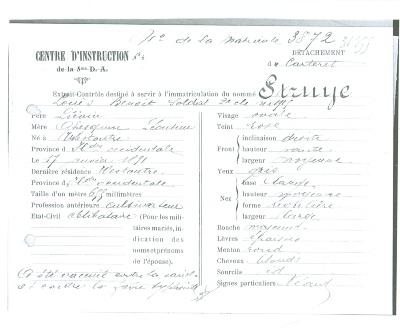 No de la matricule 3572
CENTRE D'INSTRUCTION No 4
de la 5me D.-A.
DÉTACHEMENT
de Carteret
Extrait-Contrôle destiné à servir à l'immatriculation du nommé Struye
Louis Benoit Soldat 2e cl
Père Liévin
Mère
Né à Westoutre
Province d Fl. occidentale
Le 17 1891
Dernière résidence Westoutre
Province d Fl. occidentale
Taille d'un mètre
Profession antérieure cultivateur
Etat-Civil célibataire (Pour les militaires mariés, indication des nom et prénoms de l'épouse).
A été vacciné contre la variole
et contre la fièvre typhoïde
Visage ovale
Teint rosé
Front
inclinaison droite
hauteur
largeur moyenne
Yeux gris
Nez
base
hauteur moyenne
forme
largeur large
Bouche moyenne
Lèvres épaisses
Menton rond
Cheveux blonds
Sourcils id
Signes particuliers Néant